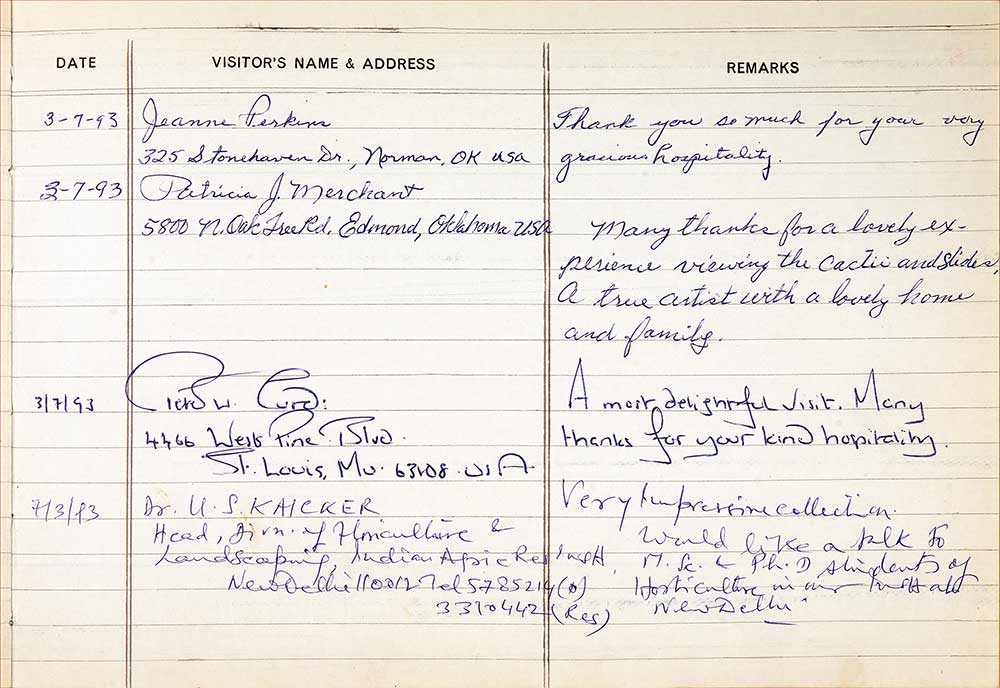 DATE VISITOR'S NAME & ADDRESS REMARKS
3-7-93 Jeanne Perkins Thank you so much for your very
325 Stonehaven Dr., Norman, OK USA gracious hospitality.
3-7-93 Patricia J. Merchant
5800 N. Oak Tree Rd. Edmond, Oklahoma USA Many thanks for a lovely ex-
perience viewing the cactii and slides.
A true artist with a lovely home
and family.
3/7/93 W. A most delightful visit. Many
4466 West Pine Blvd. thanks for your kind hospitality.
St. Louis, Mo. 63108 USA.
7/3/93 Dr. U.S. KAICKER Very Impressive collection.
Head, Divn. of Floriculture & Would like a talk to
Landscaping, Indian Agric Res Instt, M.Sc. & Ph.D students of
New Delhi 110012 Tel 5785214 (O) Horticulture in our Instt at
3310442 (Res) New Delhi